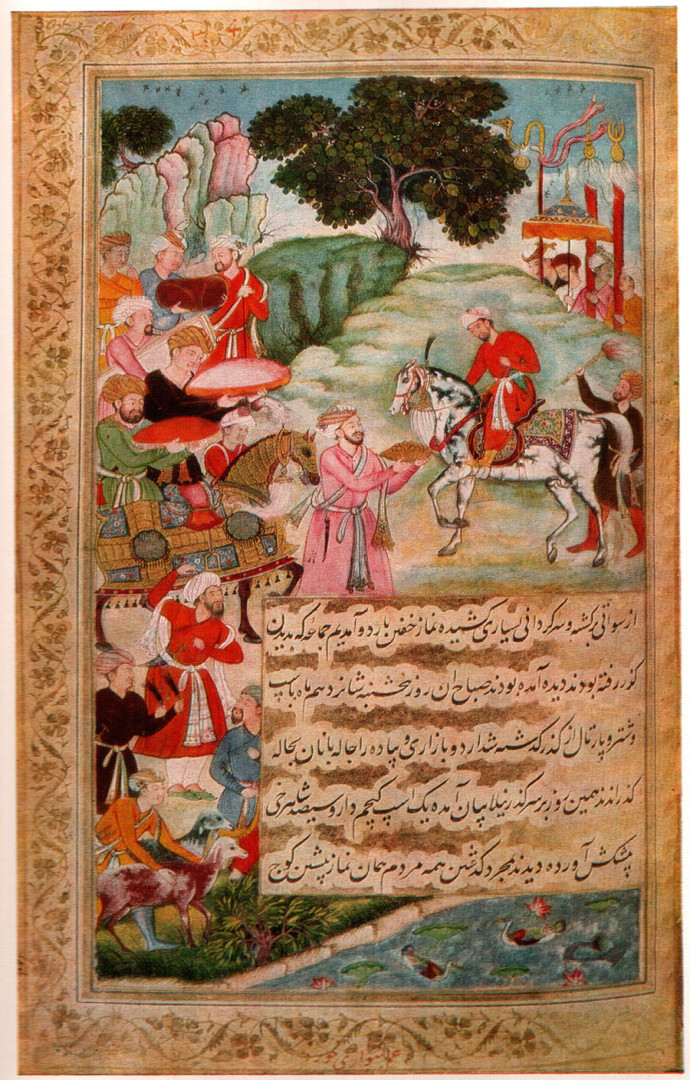 از سواتی برکشته و سرکردانی بسیاری کشیده نماز خفتن باردو آمدیم جماعه که بدیدن
کذر رفته بودند دیده آمده بودند صباح ان روز پنجشنبه شانزدهم ماه باسپ
و شتر و پارتال از کذر کذشته شد اردو بازاری و پیاده را جاله بانان بجاله
کذراندند همین روز بر سر کذر نیلابیان آمده یک اسپ کیچم دار و سیصد شاهرخی
پیشکش آورده دیدند بمجرد کذشتن همه مردم همان نماز پیشین کوچ